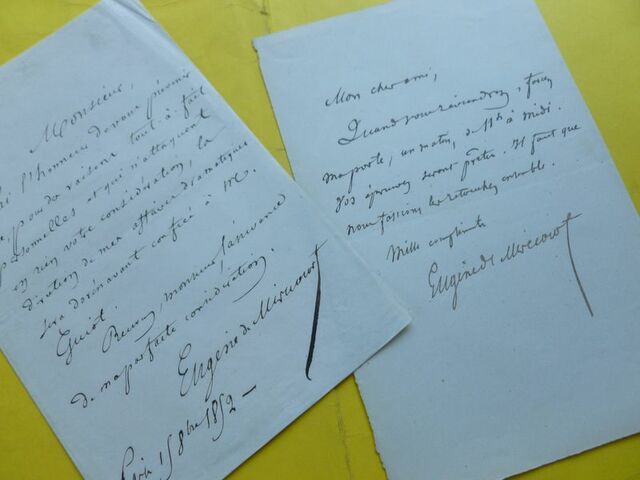 Monsieur,
l'honneur de vous prévenir
que pour des raisons tout à fait
personnelles et qui n'attaquent
en rien votre considération, la
direction de mes affaires dramatiques
sera dorénavant confiée à M.
Guiot.
Recevez, monsieur, l'assurance
de ma parfaite considération.
Eugène de Mirecourt
Paris 15 8bre 1852 —
Mon cher ami,
Quand vous reviendrez, forcez
ma porte, un matin, de 11h à midi.
Vos épreuves seront prêtes. Il faut que
nous fassions les retouches ensemble.
Mille compliments
Eugène de Mirecourt